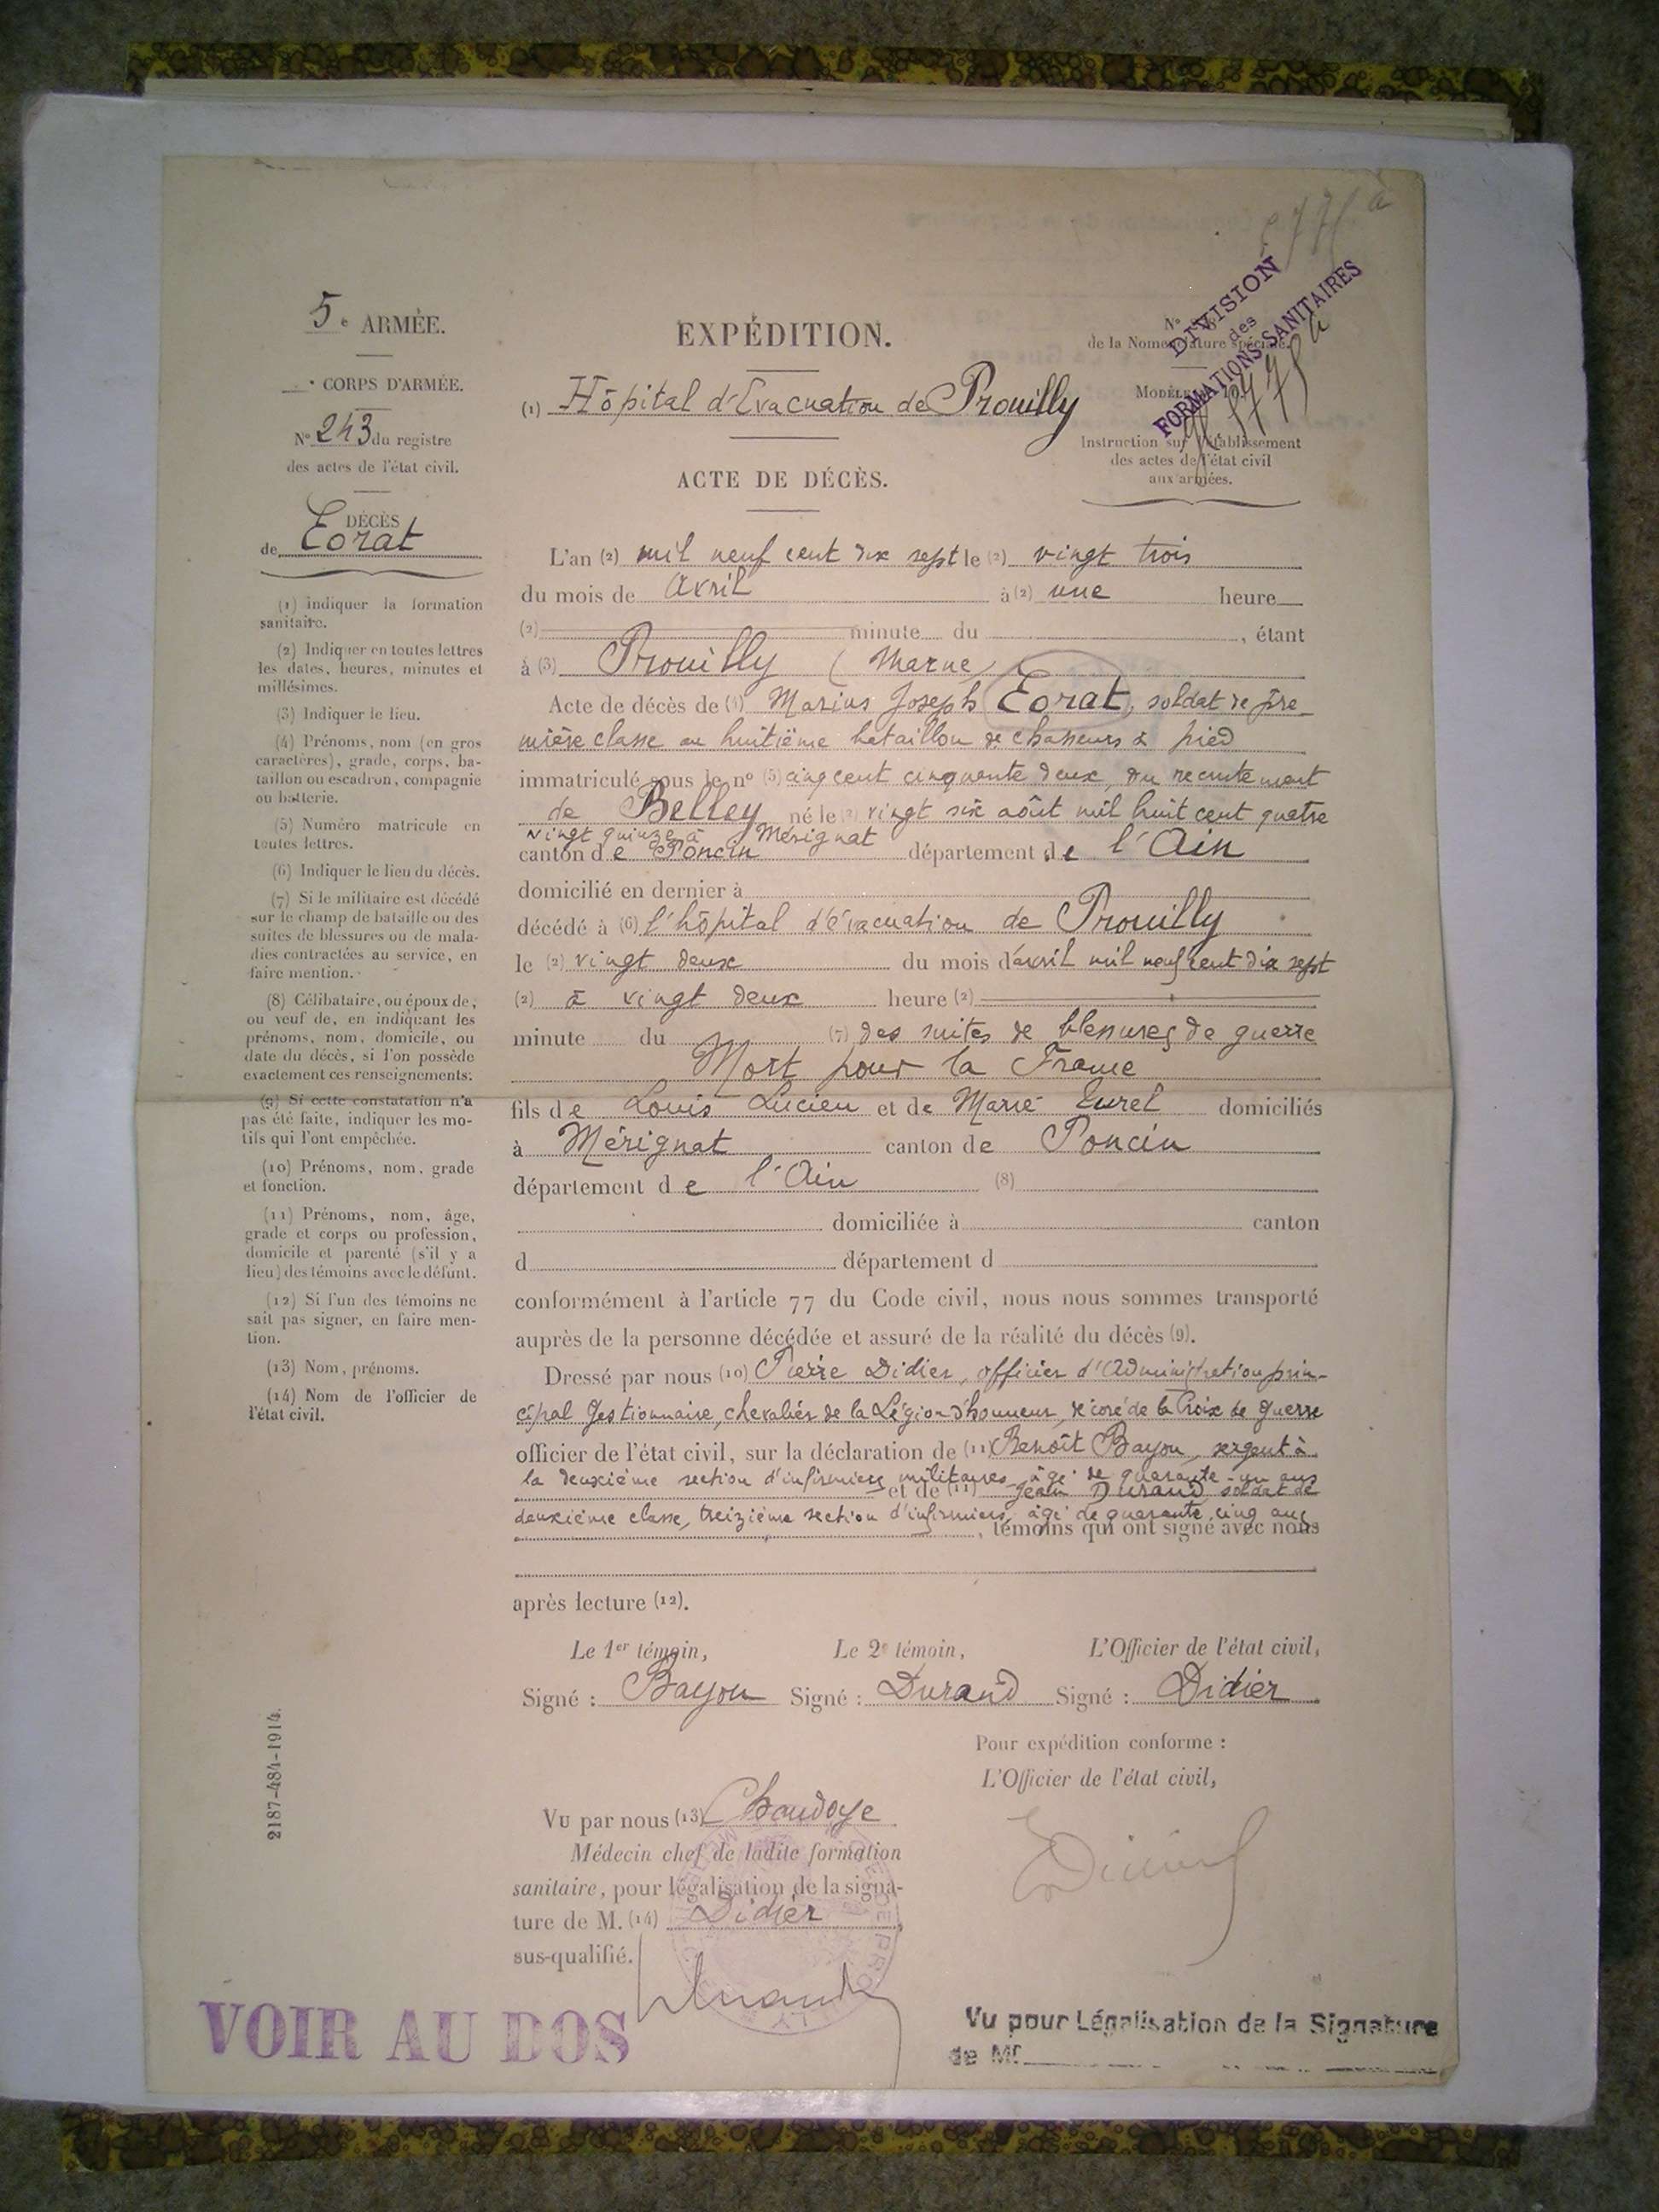 5e ARMÉE.
CORPS D'ARMÉE.
N° 243 du registre
des actes de l'état civil.
DÉCÈS
de Eorat
(1) indiquer la formation
sanitaire.
(2) Indiquer en toutes lettres
les dates, heures, minutes et
millésimes.
(3) Indiquer le lieu.
(4) Prénoms, nom (en gros
caractères), grade, corps, ba-
taillon ou escadron, compagnie
ou batterie.
(5) Numéro matricule en
toutes lettres.
(6) Indiquer le lieu du décès.
(7) Si le militaire est décédé
sur le champ de bataille ou des
suites de blessures ou de mala-
dies contractées au service, en
faire mention.
(8) Célibataire, ou époux de,
ou veuf de, en indiquant les
prénoms, nom, domicile, ou
date du décès, si l'on possède
exactement ces renseignements.
(9) Si cette constatation n'a
pas été faite, indiquer les mo-
tifs qui l'ont empêchée.
(10) Prénoms, nom, grade
et fonction.
(11) Prénoms, nom, âge,
grade et corps ou profession,
domicile et parenté (s'il y a
lieu) des témoins avec le défunt.
(12) Si l'un des témoins ne
sait pas signer, en faire men-
tion.
(13) Nom, prénoms.
(14) Nom de l'officier de
l'état civil.
2187-484-1914.
EXPÉDITION.
(1) Hôpital d'Evacuation de Prouilly
ACTE DE DÉCÈS.
N°
de la Nomenclature spéciale.
MODÈLE
Instruction sur l'établissement
des actes de l'état civil
aux armées.
DIVISION
des
FORMATIONS SANITAIRES
L'an (2) mil neuf cent dix sept le (2) vingt trois
du mois de Avril à (2) une heure
(2) minute du , étant
à (3) Prouilly (Marne)
Acte de décès de (4) Marius Joseph Eorat, soldat de pre-
mière classe au huitième bataillon de chasseurs à pied
immatriculé sous le n° (5) cinq cent cinquante deux, du recrutement
de Belley né le (2) vingt six août mil huit cent quatre
vingt quinze à Mérignat
canton de Poncin département de l'Ain
domicilié en dernier à
décédé à (6) l'hôpital d'évacuation de Prouilly
le (2) vingt deux du mois d'avril mil neuf cent dix sept
(2) à vingt deux heure (2)
minute du (7) des suites de blessures de guerre
Mort pour la France
fils de Louis Lucien et de Marie Eurel domiciliés
à Mérignat canton de Poncin
département de l'Ain (8)
domiciliée à canton
d département d
conformément à l'article 77 du Code civil, nous nous sommes transporté
auprès de la personne décédée et assuré de la réalité du décès (9).
Dressé par nous (10) Pierre Didier, officier d'Administration prin-
cipal Gestionnaire, chevalier de la Légion d'honneur, décoré de la Croix de guerre
officier de l'état civil, sur la déclaration de (11) Benoît Bayon, sergent à
la deuxième section d'infirmiers militaires, âgé de quarante-un ans
et de (11) Jean Durand, soldat de
deuxième classe, treizième section d'infirmiers, âgé de quarante cinq ans
, témoins qui ont signé avec nous
après lecture (12).
Le 1er témoin, Le 2e témoin, L'Officier de l'état civil,
Signé : Bayon Signé : Durand Signé : Didier
Pour expédition conforme :
L'Officier de l'état civil,
Vu par nous (13) Chaudoye
Médecin chef de ladite formation
sanitaire, pour légalisation de la signa-
ture de M. (14) Didier
sus-qualifié.
VOIR AU DOS
Vu pour Légalisation de la Signature
de Mr